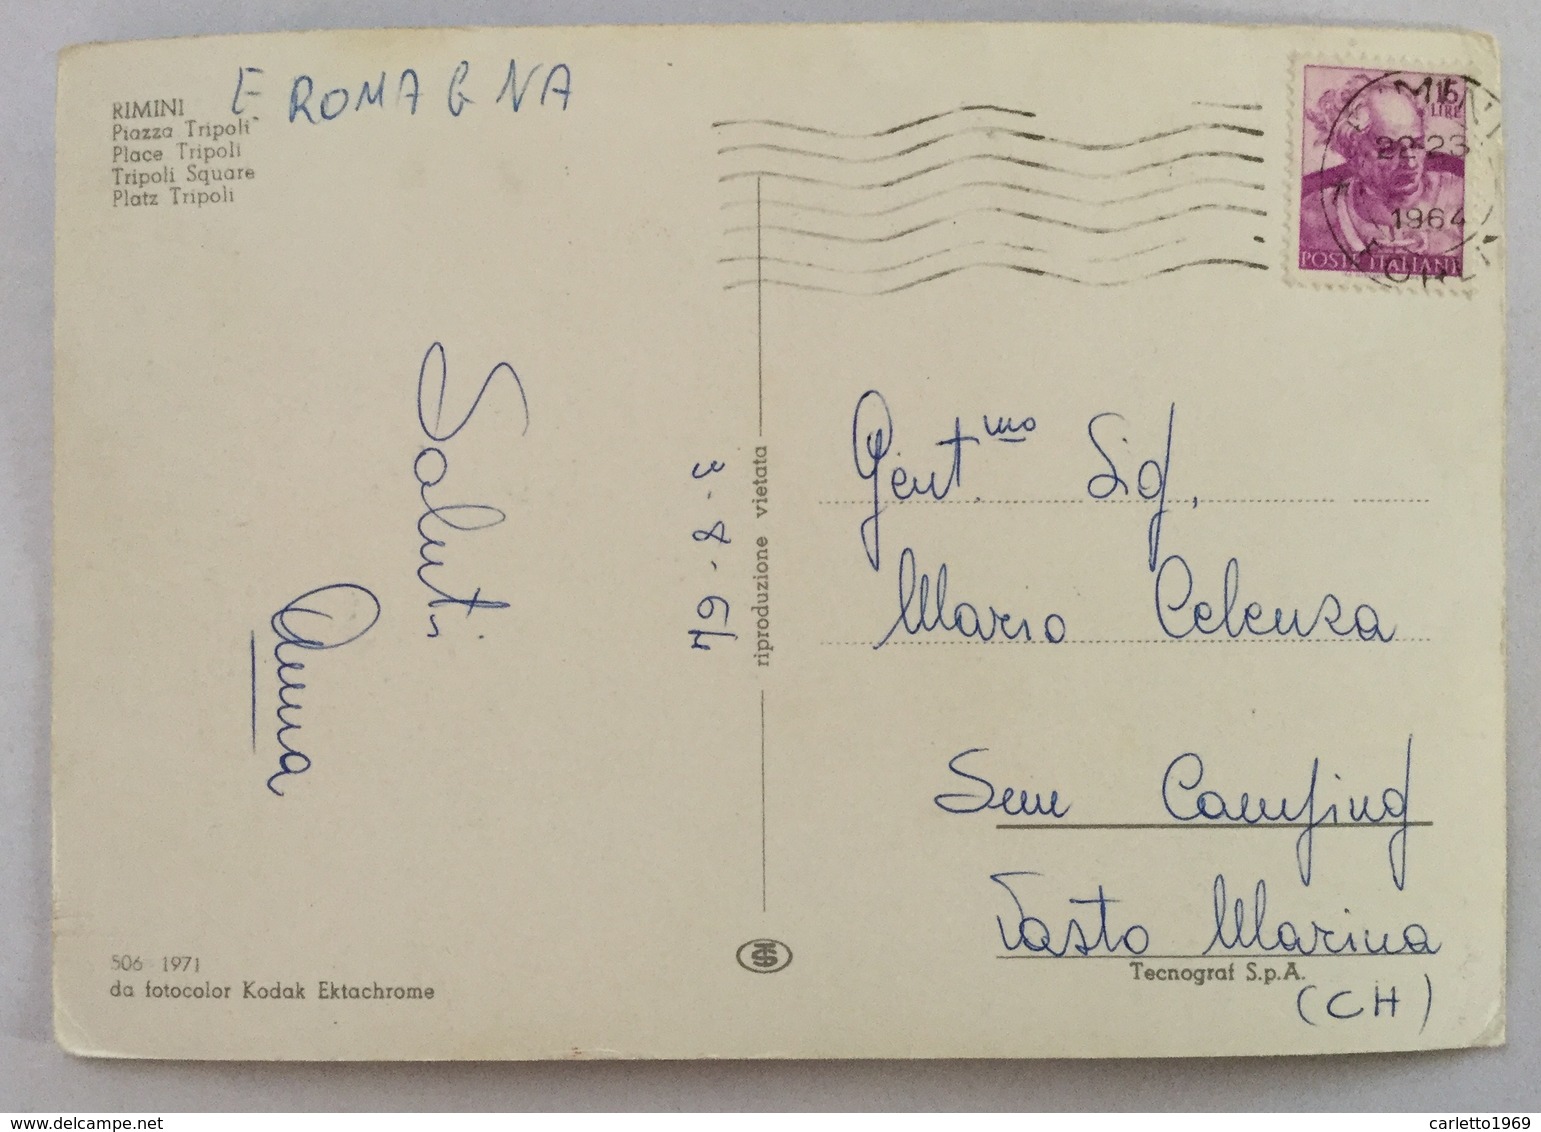 RIMINI
Piazza Tripoli
Place Tripoli
Tripoli Square
Platz Tripoli
E ROMAGNA
15
LIRE
22-23
1964
POSTE ITALIANE
Saluti
Anna
3-8-64
riproduzione vietata
Gent.mo Sig.
Mario Celenza
Camping
Vasto Marina
(CH)
Tecnograf S.p.A.
506 1971
da fotocolor Kodak Ektachrome
www.delcampe.net
carletto1969